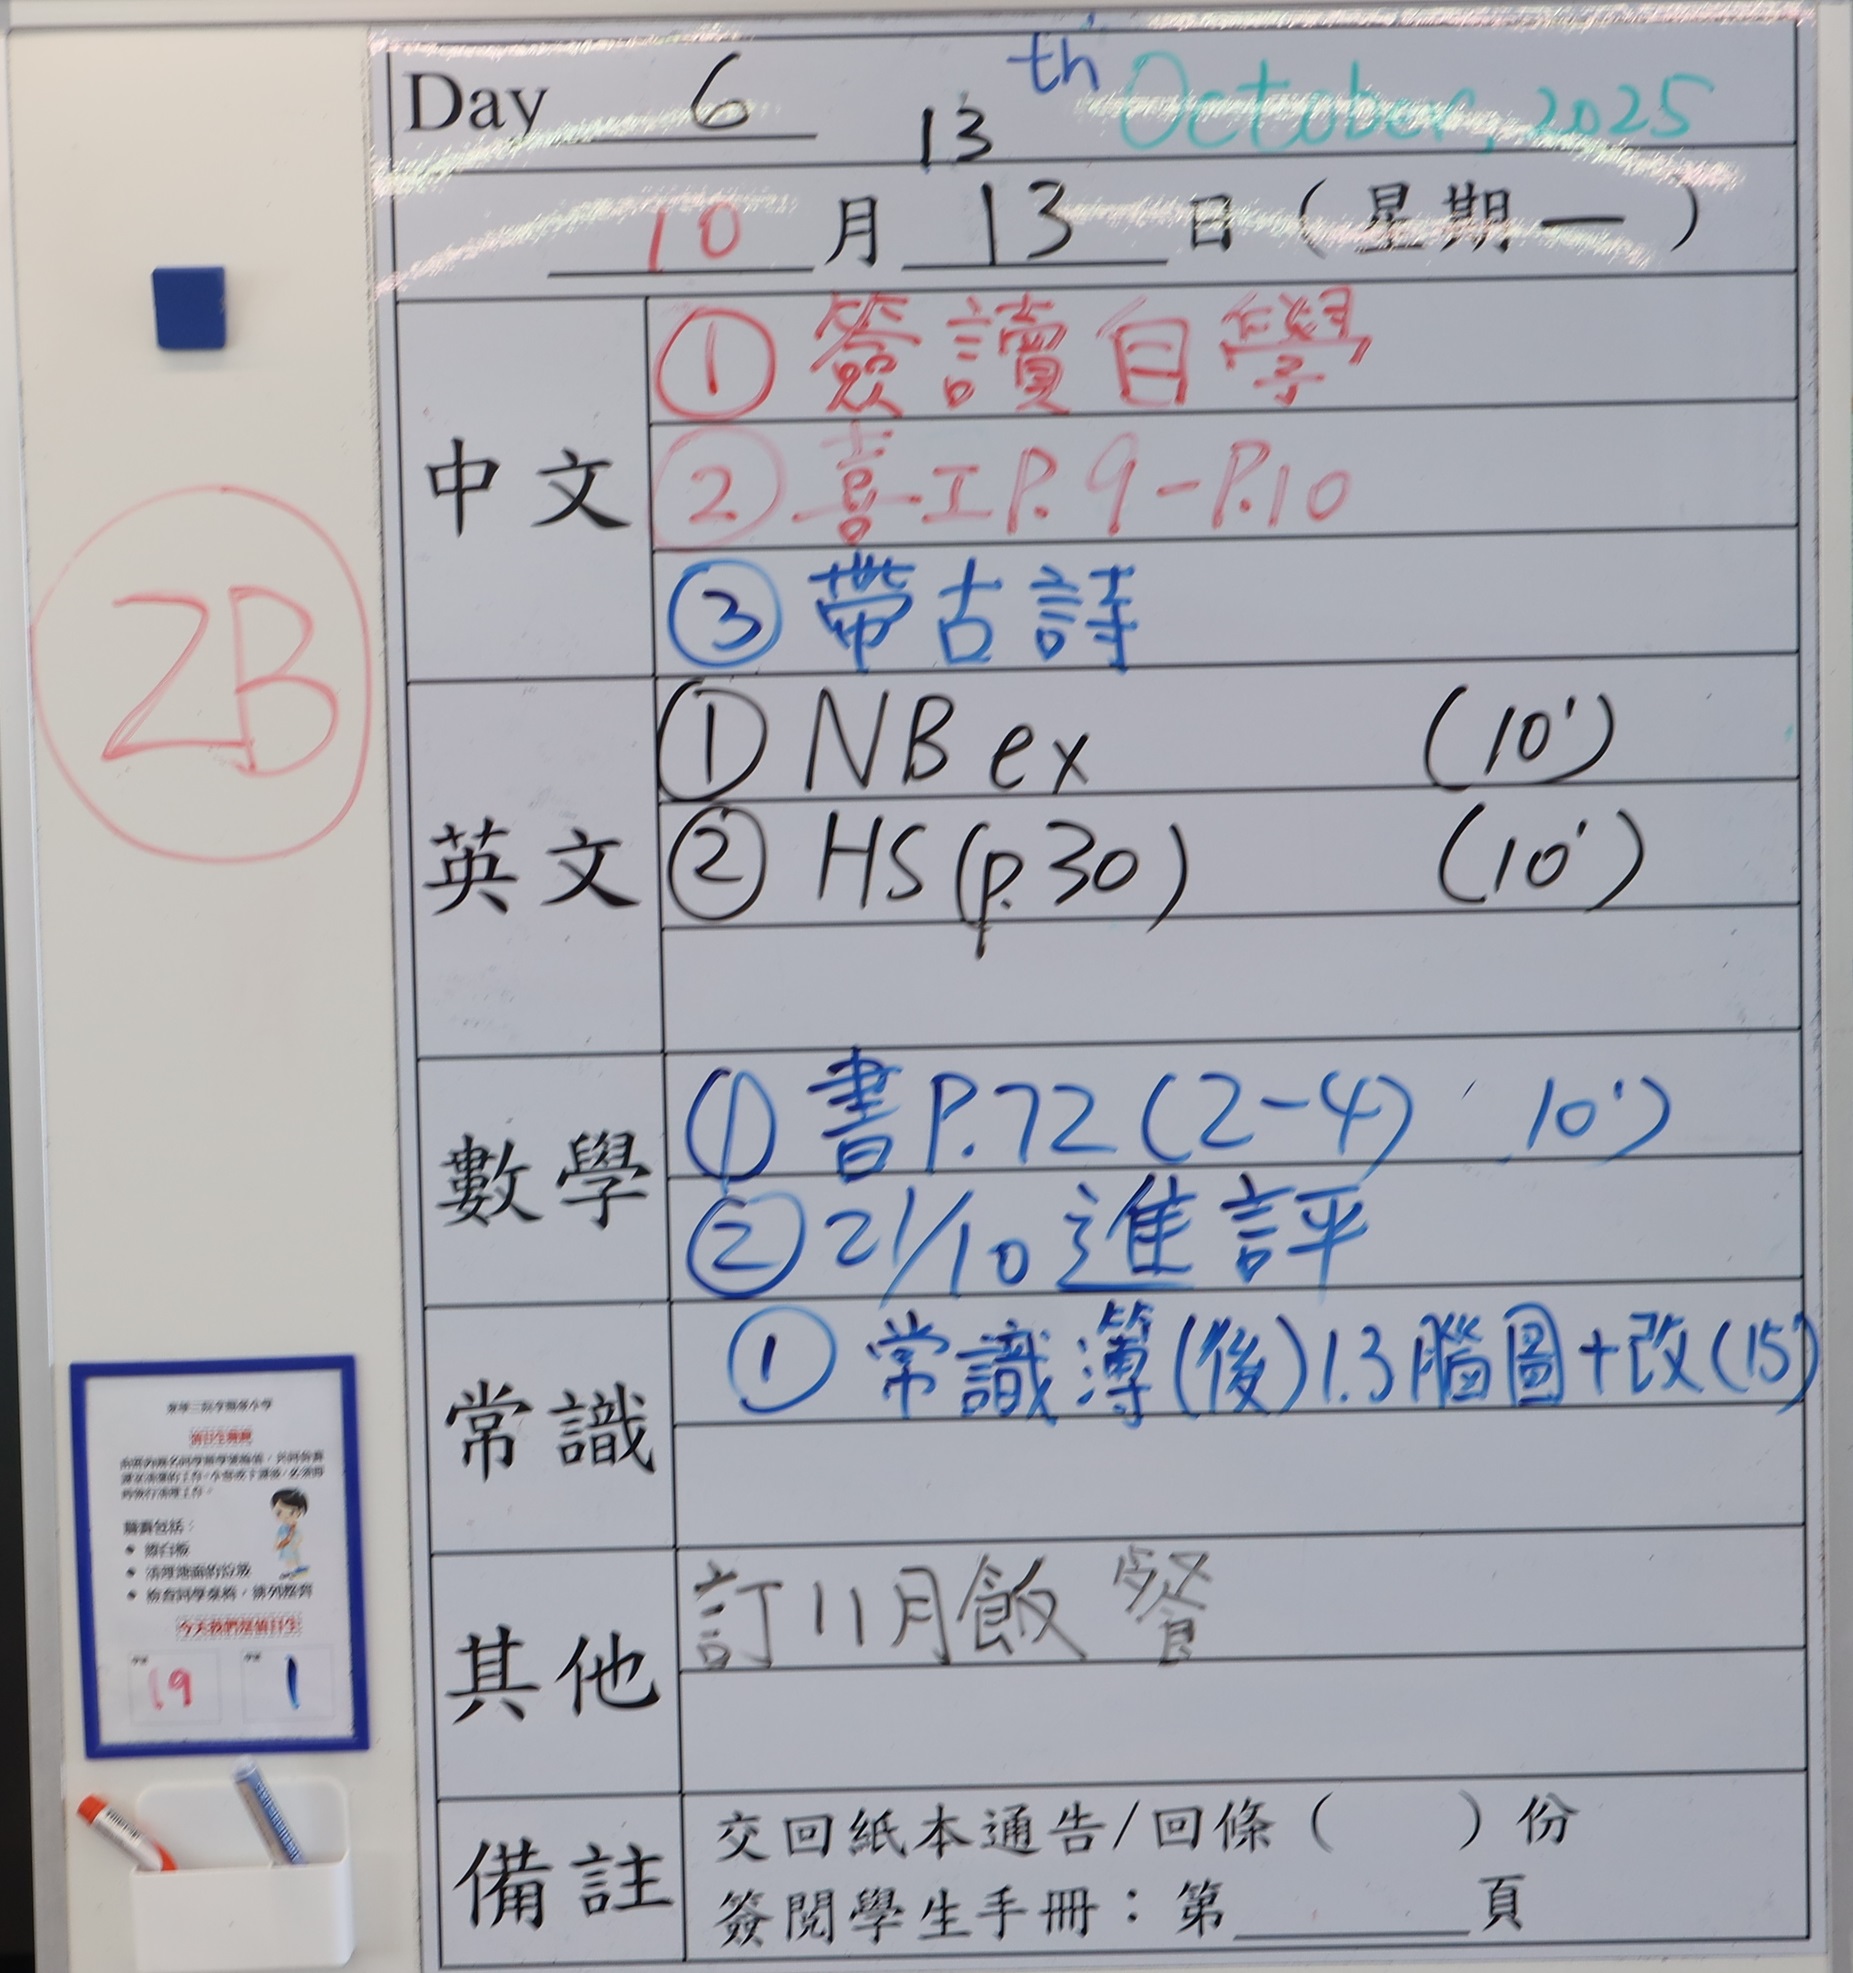 Day 6 13th October, 2025
10 月 13 日 ( 星期一 )
2B
中文
① 簽讀自學
② 喜工P.9-P.10
③ 帶古詩
英文
① NB ex (10')
② HS (p.30) (10')
數學
① 書P.72 (2-4) 10')
② 21/10 進評
常識
① 常識簿(後)1.3腦圖+改(15')
其他
訂11月飯餐
備註
交回紙本通告/回條( )份
簽閱學生手冊:第 頁
職責包括:
今天我們是值日生
19 1